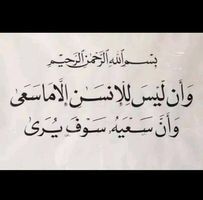 بِسْمِ اللَّهِ الرَّحْمَٰنِ الرَّحِيمِ
وَأَن لَّيْسَ لِلْإِنسَٰنِ إِلَّا مَا سَعَىٰ
وَأَنَّ سَعْيَهُۥ سَوْفَ يُرَىٰ